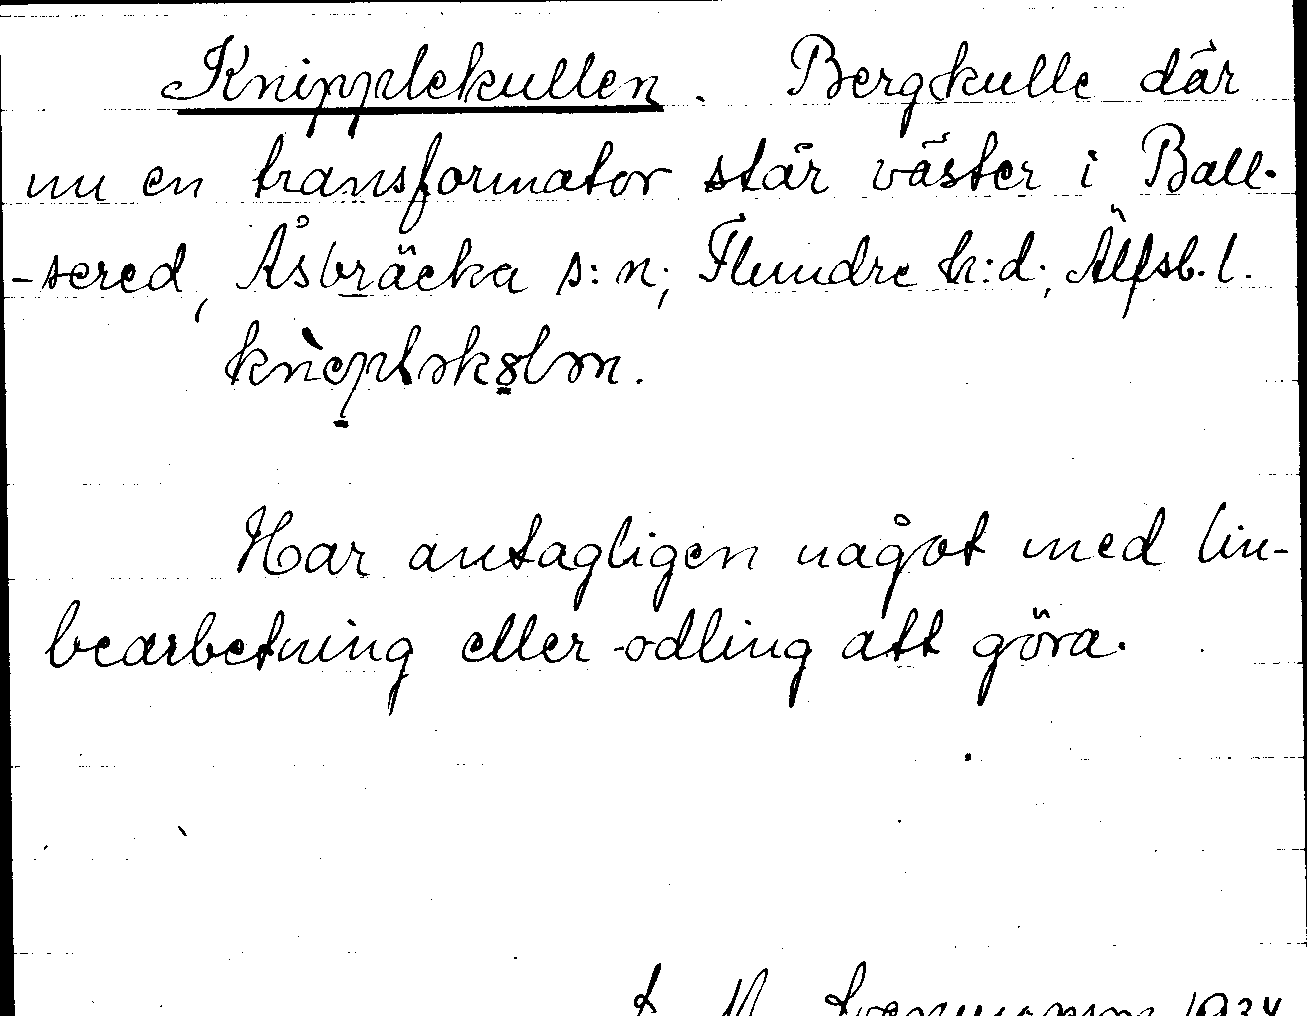 Knipplekullen. Bergkulle där
nu en transformator står väster i Ball-
-sered, Åsbräcka s:n; Flundre h:d; Älfsb. l.
Har antagligen något med lin-
bearbetning eller -odling att göra.
1934